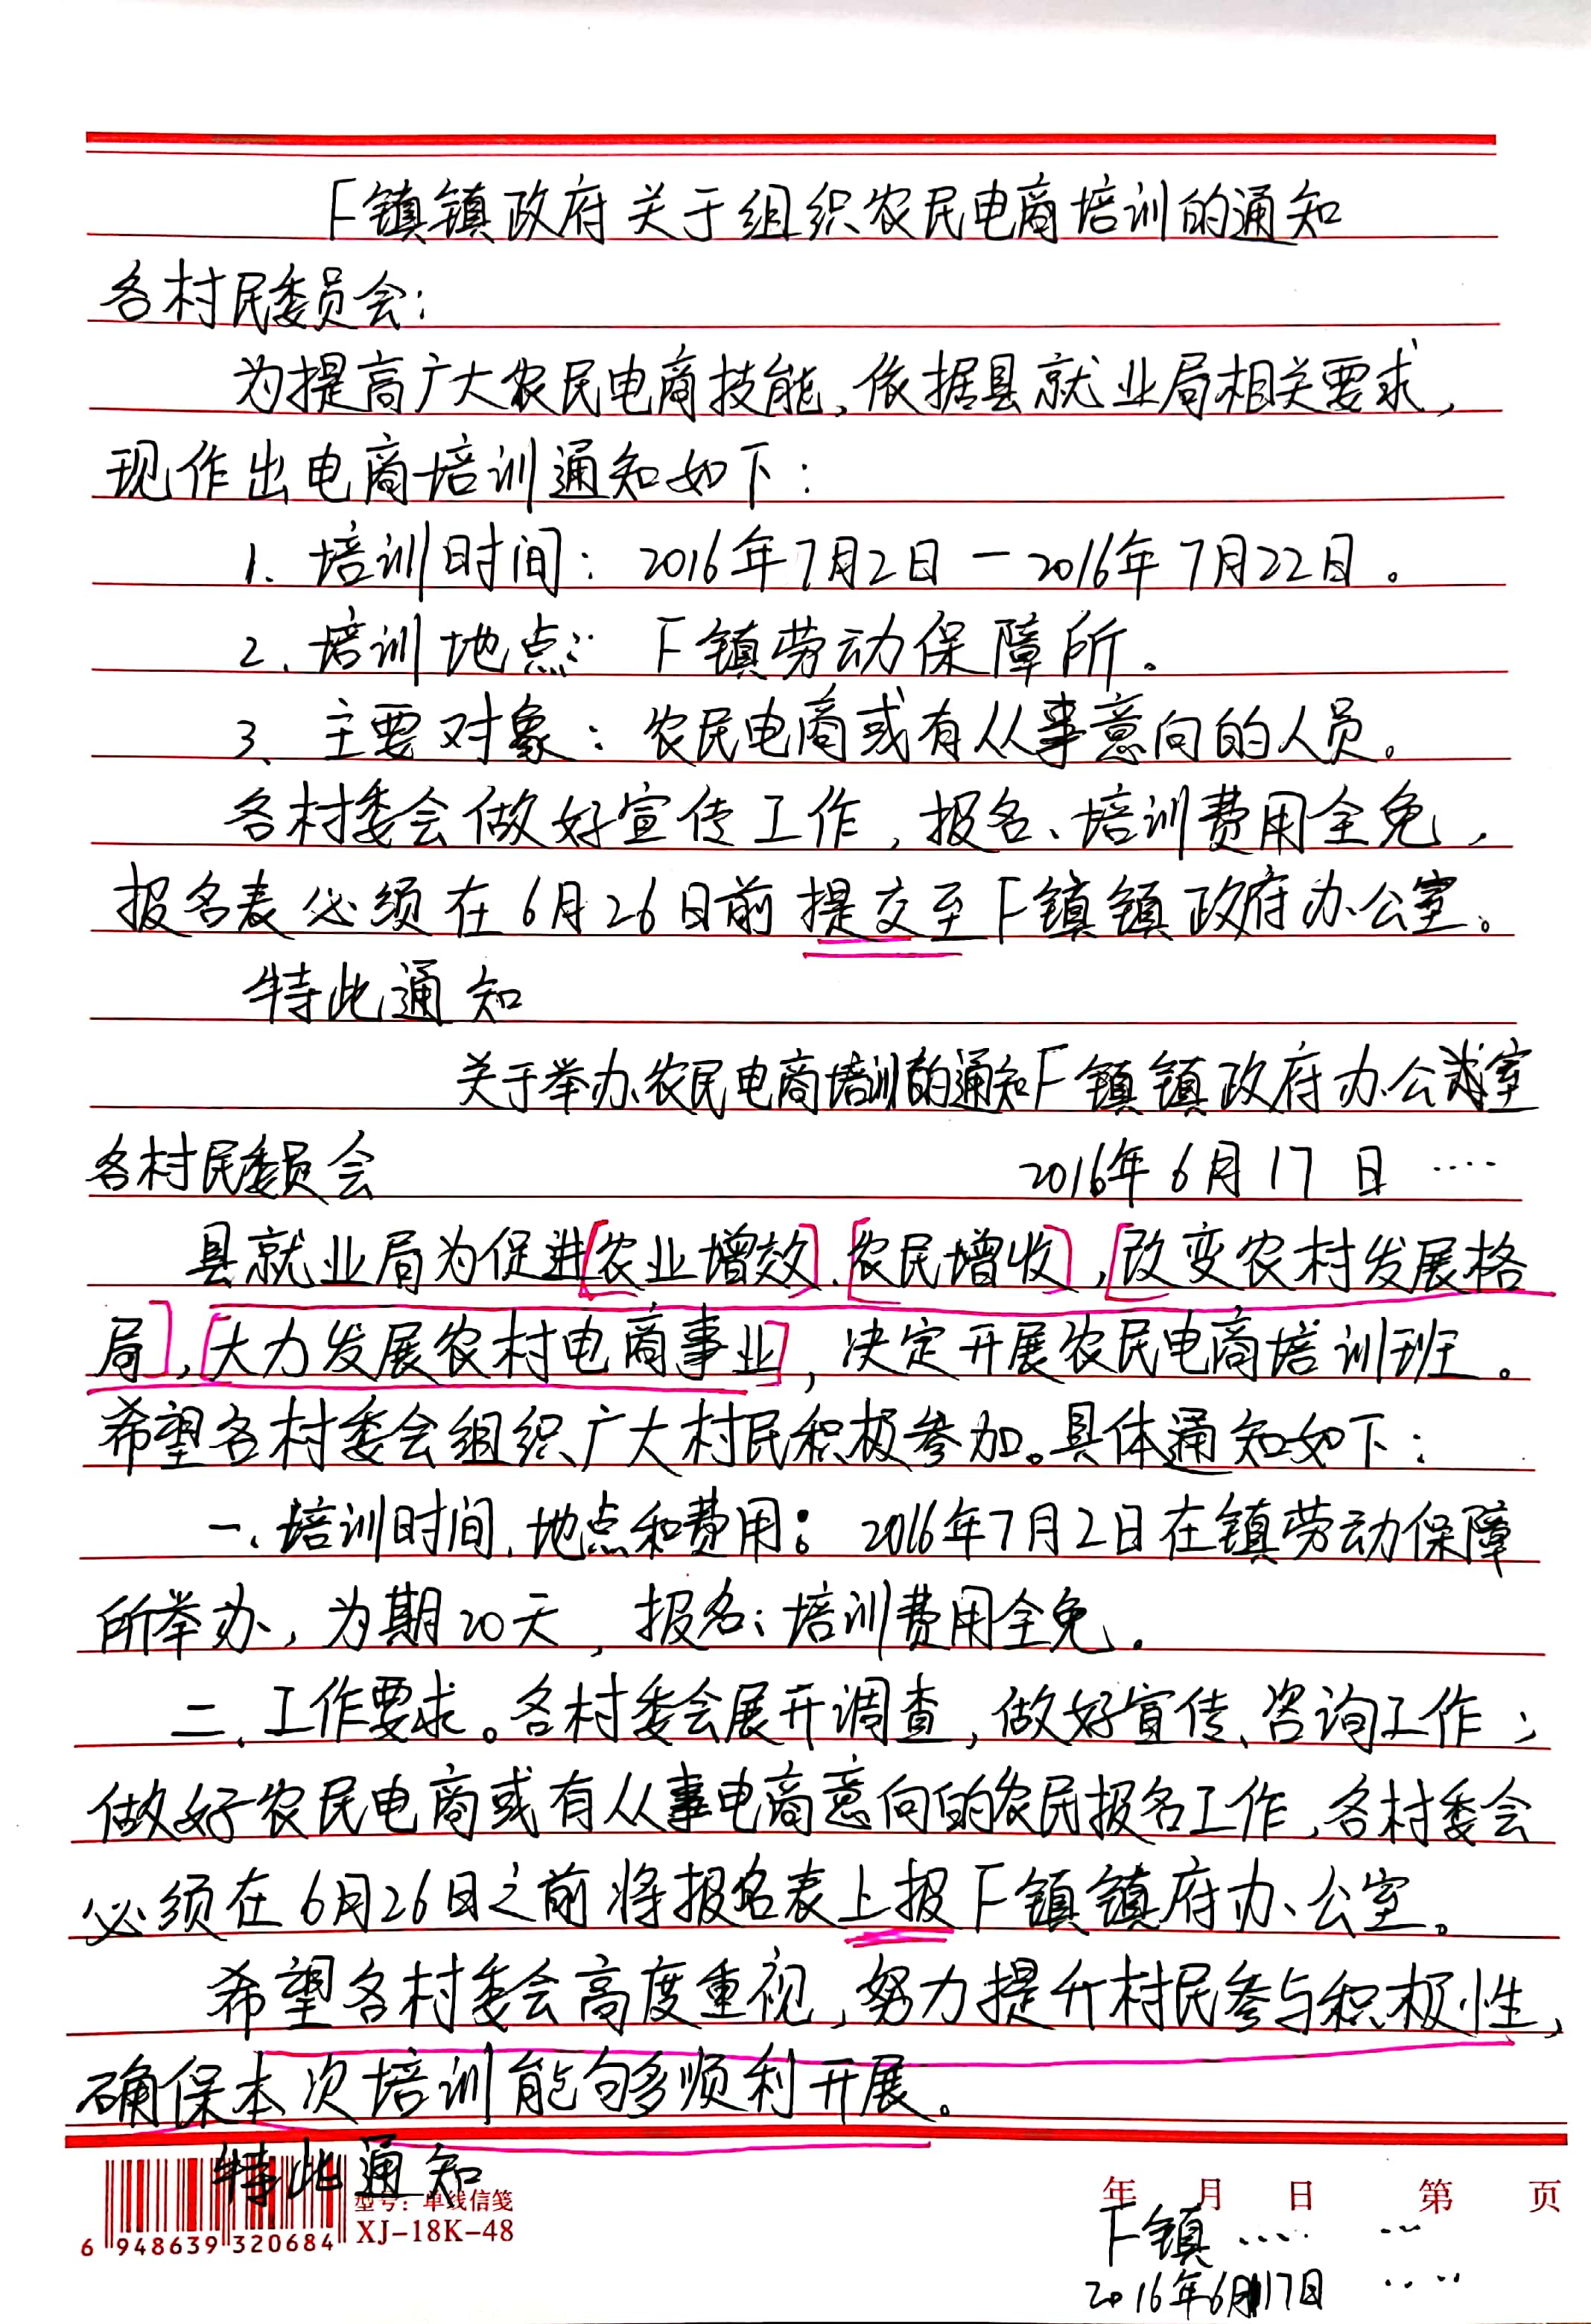 F镇镇政府关于组织农民电商培训的通知
各村民委员会：
为提高广大农民电商技能，依据县就业局相关要求，
现作出电商培训通知如下：
1、培训时间：2016年7月2日－2016年7月22日。
2、培训地点：F镇劳动保障所。
3、主要对象：农民电商或有从事意向的人员。
各村委会做好宣传工作，报名、培训费用全免，
报名表必须在6月26日前提交至F镇镇政府办公室。
特此通知
关于举办农民电商培训的通知F镇镇政府办公室
各村民委员会 2016年6月17日 ····
县就业局为促进[农业增效]、[农民增收]，[改变农村发展格
局]，[大力发展农村电商事业]，决定开展农民电商培训班。
希望各村委会组织广大村民积极参加。具体通知如下：
一、培训时间、地点和费用：2016年7月2日在镇劳动保障
所举办，为期20天，报名、培训费用全免。
二、工作要求。各村委会展开调查，做好宣传、咨询工作；
做好农民电商或有从事电商意向的农民报名工作，各村委会
必须在6月26日之前将报名表上报F镇镇府办公室。
希望各村委会高度重视，努力提升村民参与积极性，
确保本次培训能够顺利开展。
特此通知
年 月 日 第 页
型号：单线信笺
XJ-18K-48
6 948639 320684
F镇···· ···
2016年6月17日 ····